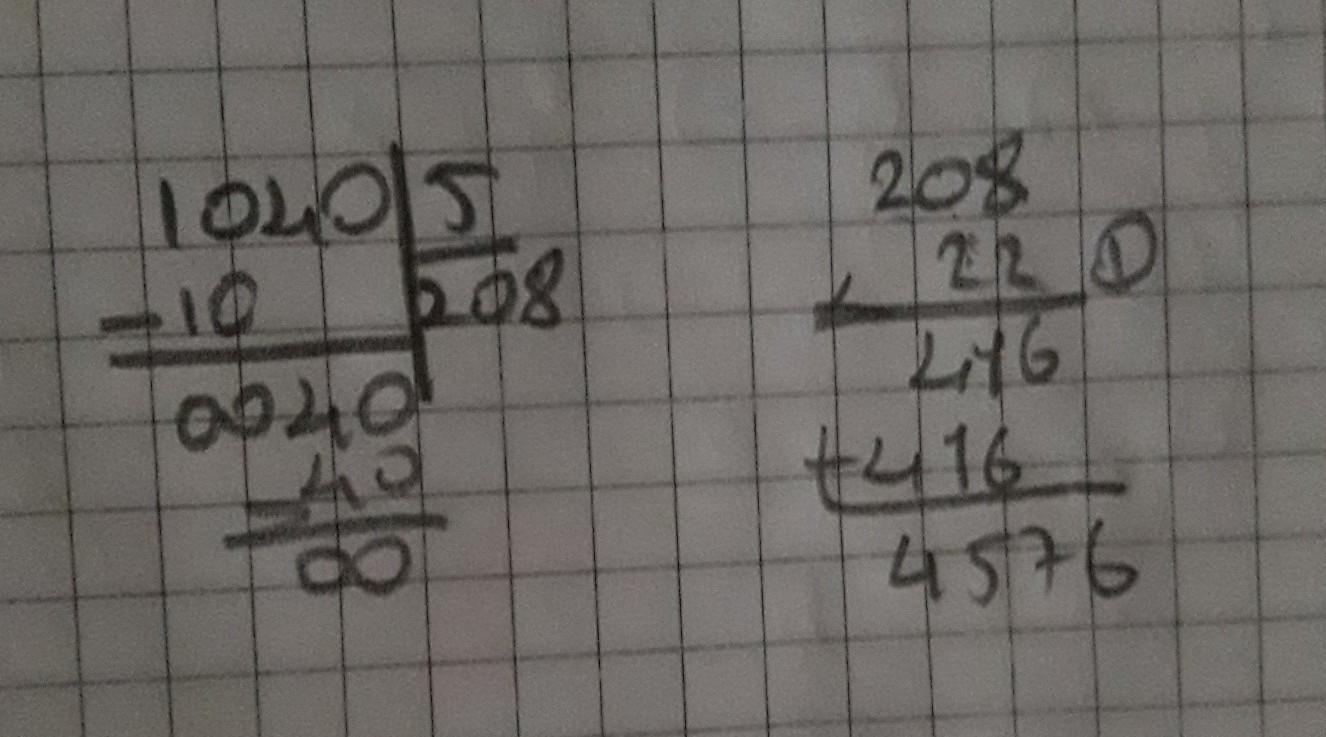 1040 5
-10 208
0040
-40
00
208
22 1
416
+416
4576